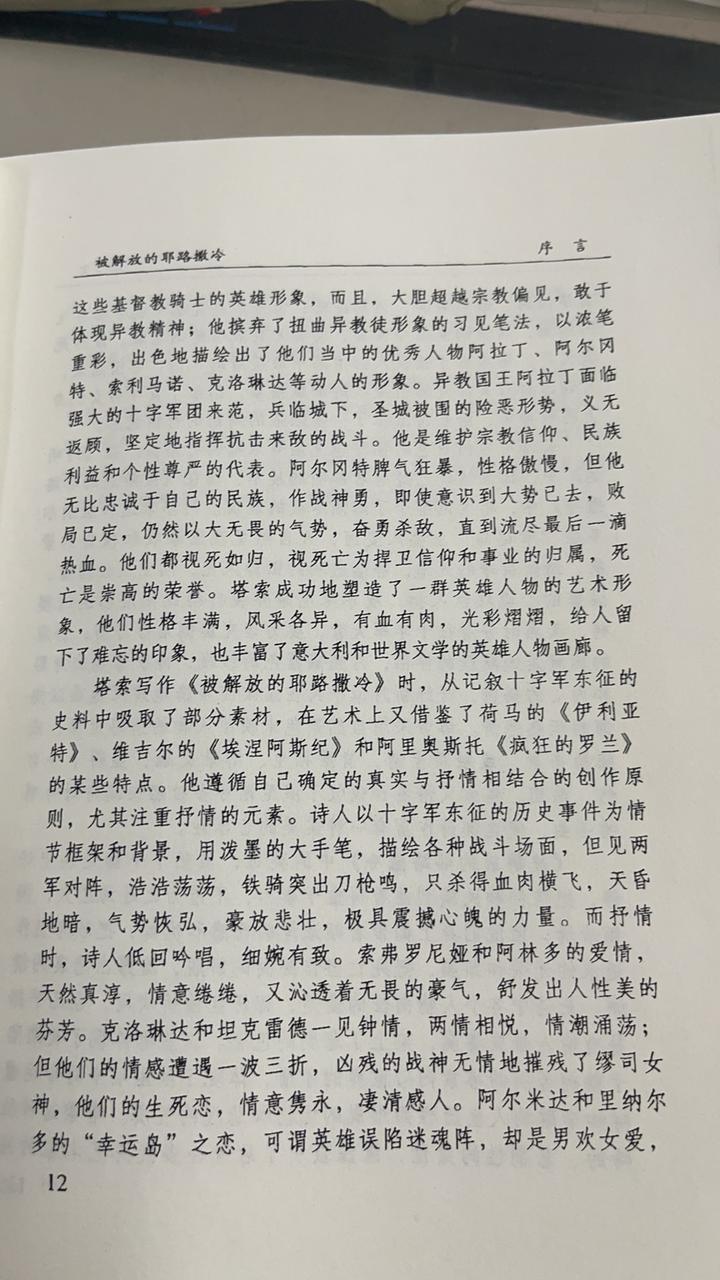 被解放的耶路撒冷 序 言
这些基督教骑士的英雄形象，而且，大胆超越宗教偏见，敢于
体现异教精神；他摈弃了扭曲异教徒形象的习见笔法，以浓笔
重彩，出色地描绘出了他们当中的优秀人物阿拉丁、阿尔冈
特、索利马诺、克洛琳达等动人的形象。异教国王阿拉丁面临
强大的十字军团来范，兵临城下，圣城被围的险恶形势，义无
返顾，坚定地指挥抗击来敌的战斗。他是维护宗教信仰、民族
利益和个性尊严的代表。阿尔冈特脾气狂暴，性格傲慢，但他
无比忠诚于自己的民族，作战神勇，即使意识到大势已去，败
局已定，仍然以大无畏的气势，奋勇杀敌，直到流尽最后一滴
热血。他们都视死如归，视死亡为捍卫信仰和事业的归属，死
亡是崇高的荣誉。塔索成功地塑造了一群英雄人物的艺术形
象，他们性格丰满，风采各异，有血有肉，光彩熠熠，给人留
下了难忘的印象，也丰富了意大利和世界文学的英雄人物画廊。
塔索写作《被解放的耶路撒冷》时，从记叙十字军东征的
史料中吸取了部分素材，在艺术上又借鉴了荷马的《伊利亚
特》、维吉尔的《埃涅阿斯纪》和阿里奥斯托《疯狂的罗兰》
的某些特点。他遵循自己确定的真实与抒情相结合的创作原
则，尤其注重抒情的元素。诗人以十字军东征的历史事件为情
节框架和背景，用泼墨的大手笔，描绘各种战斗场面，但见两
军对阵，浩浩荡荡，铁骑突出刀枪鸣，只杀得血肉横飞，天昏
地暗，气势恢弘，豪放悲壮，极具震撼心魄的力量。而抒情
时，诗人低回吟唱，细婉有致。索弗罗尼娅和阿林多的爱情，
天然真淳，情意绻绻，又沁透着无畏的豪气，舒发出人性美的
芬芳。克洛琳达和坦克雷德一见钟情，两情相悦，情潮涌荡；
但他们的情感遭遇一波三折，凶残的战神无情地摧残了缪司女
神，他们的生死恋，情意隽永，凄清感人。阿尔米达和里纳尔
多的“幸运岛”之恋，可谓英雄误陷迷魂阵，却是男欢女爱，
12